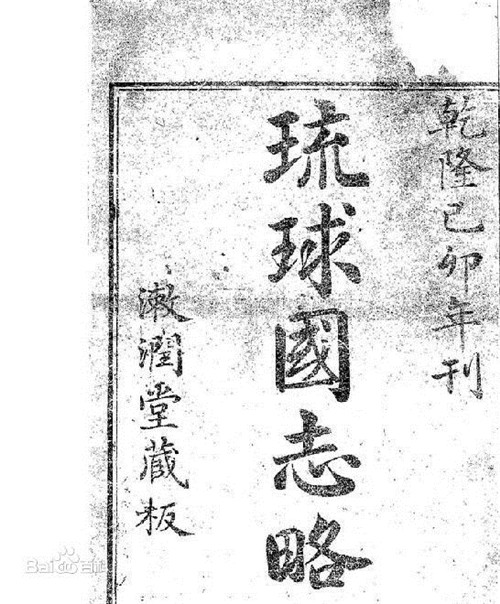 乾隆己卯年刊
琉球國志略
漱潤堂蔵板
Bai百科